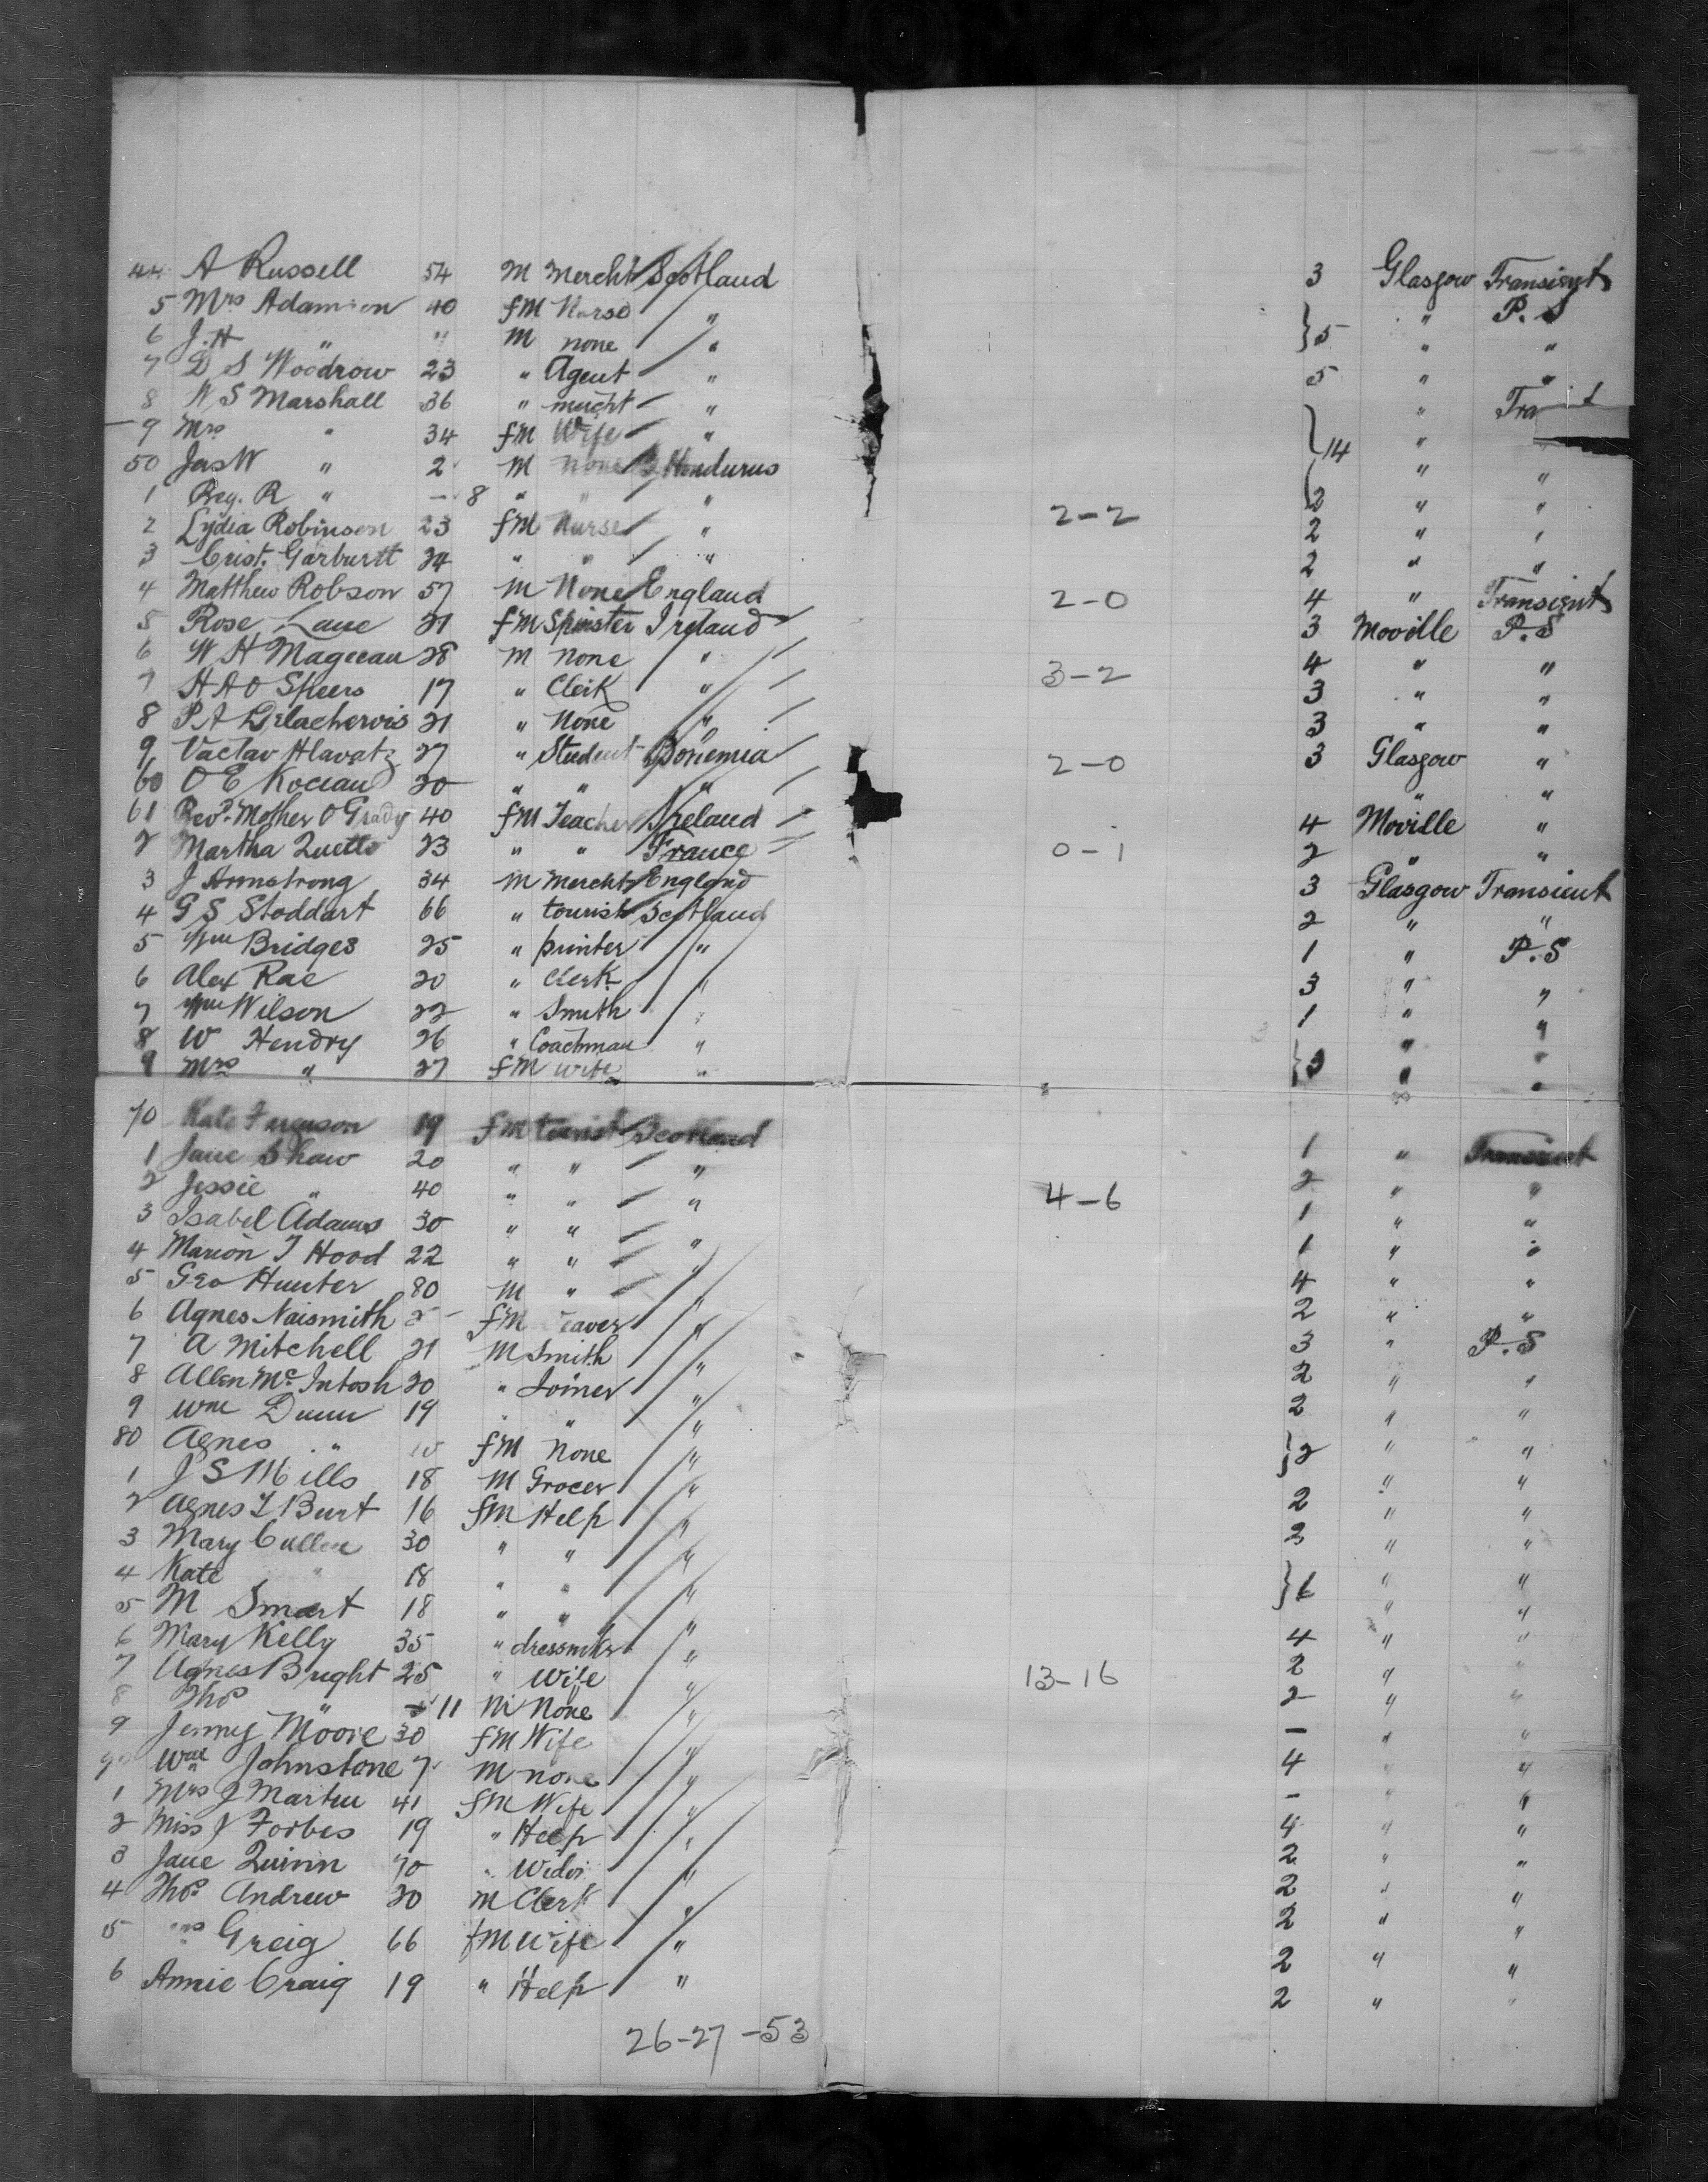 44 A Russell 54 M Mercht Scotland 3 Glasgow Transient
5 Mrs Adamson 40 fM Nurse " " P.S
6 J.H " " M none " } 5 " "
7 D S Woodrow 23 " Agent " 5 " "
8 W S Marshall 36 " mercht " " Tra
9 Mrs " 34 fM Wife " } 14 "
50 Jas W " 2 M none B Hondurus " "
1 Reg. R " - 8 " " " 2 " "
2 Lydia Robinson 23 fM Nurse " 2-2 2 " "
3 Crist. Garburtt 24 " " " 2 " "
4 Matthew Robson 57 M None England 2-0 4 " Transient
5 Rose Lane 21 fM Spinster Ireland 3 Moville P.S
6 W H Mageean 28 M none " 4 " "
7 H A O Speers 17 " Clerk " 3-2 3 " "
8 P A Delachervis 21 " None " 3 " "
9 Vaclav Hlavatz 27 " Student Bohemia 2-0 3 Glasgow "
60 O E Kocian 20 " " " " "
61 Revd. Mother O Grady 40 fM Teacher Ireland 4 Moville "
2 Martha 23 " " France 0-1 2 " "
3 J Armstrong 34 M Mercht England 3 Glasgow Transient
4 G S Stoddart 66 " tourist Scotland 2 " "
5 Wm Bridges 25 " printer " 1 " P.S
6 Alex Rae 20 " Clerk " 3 " "
7 Wm Wilson 22 " Smith " 1 " "
8 W Hendry 26 " Coachman " " "
9 Mrs " 27 fM wife " } 3 " "
70 Kate Ferguson 19 fM tourist Scotland 1 " Transient
1 Jane Shaw 20 " " " 2 " "
2 Jessie " 40 " " " 4-6 1 " "
3 Isabel Adams 30 " " " 1 " "
4 Marion T Hood 22 " " " 4 " "
5 Geo Hunter 80 M " " 2 " "
6 Agnes Naismith fM " 3 " P.S
7 A Mitchell 21 M Smith " 2 " "
8 Allen Mc Intosh 20 " Joiner " 2 " "
9 Wm Dunn 19 " " " " "
80 Agnes " fM none " } 2 " "
1 J S Mills 18 M Grocer " 2 " "
2 Agnes L Burt 16 fM Help " 2 " "
3 Mary Cullen 30 " " " " "
4 Kate " 18 " " " } " "
5 M Smart 18 " " " 4 " "
6 Mary Kelly 35 " dressmkr " 2 " "
7 Agnes Bright 25 " Wife " 13-16 2 " "
8 Thos " - 11 M None " - " "
9 Jenny Moore 30 fM Wife " 4 " "
90 Wm Johnstone 7 M none " - " "
1 Mrs J Martin 41 fM Wife " 4 " "
2 Miss J Forbes 19 " Help " 2 " "
3 Jane Quinn 70 " Widow " 2 " "
4 Thos Andrew 20 M Clerk " 2 " "
5 Mrs Greig 66 fM Wife " 2 " "
6 Annie Craig 19 " Help " 2 " "
26-27-53